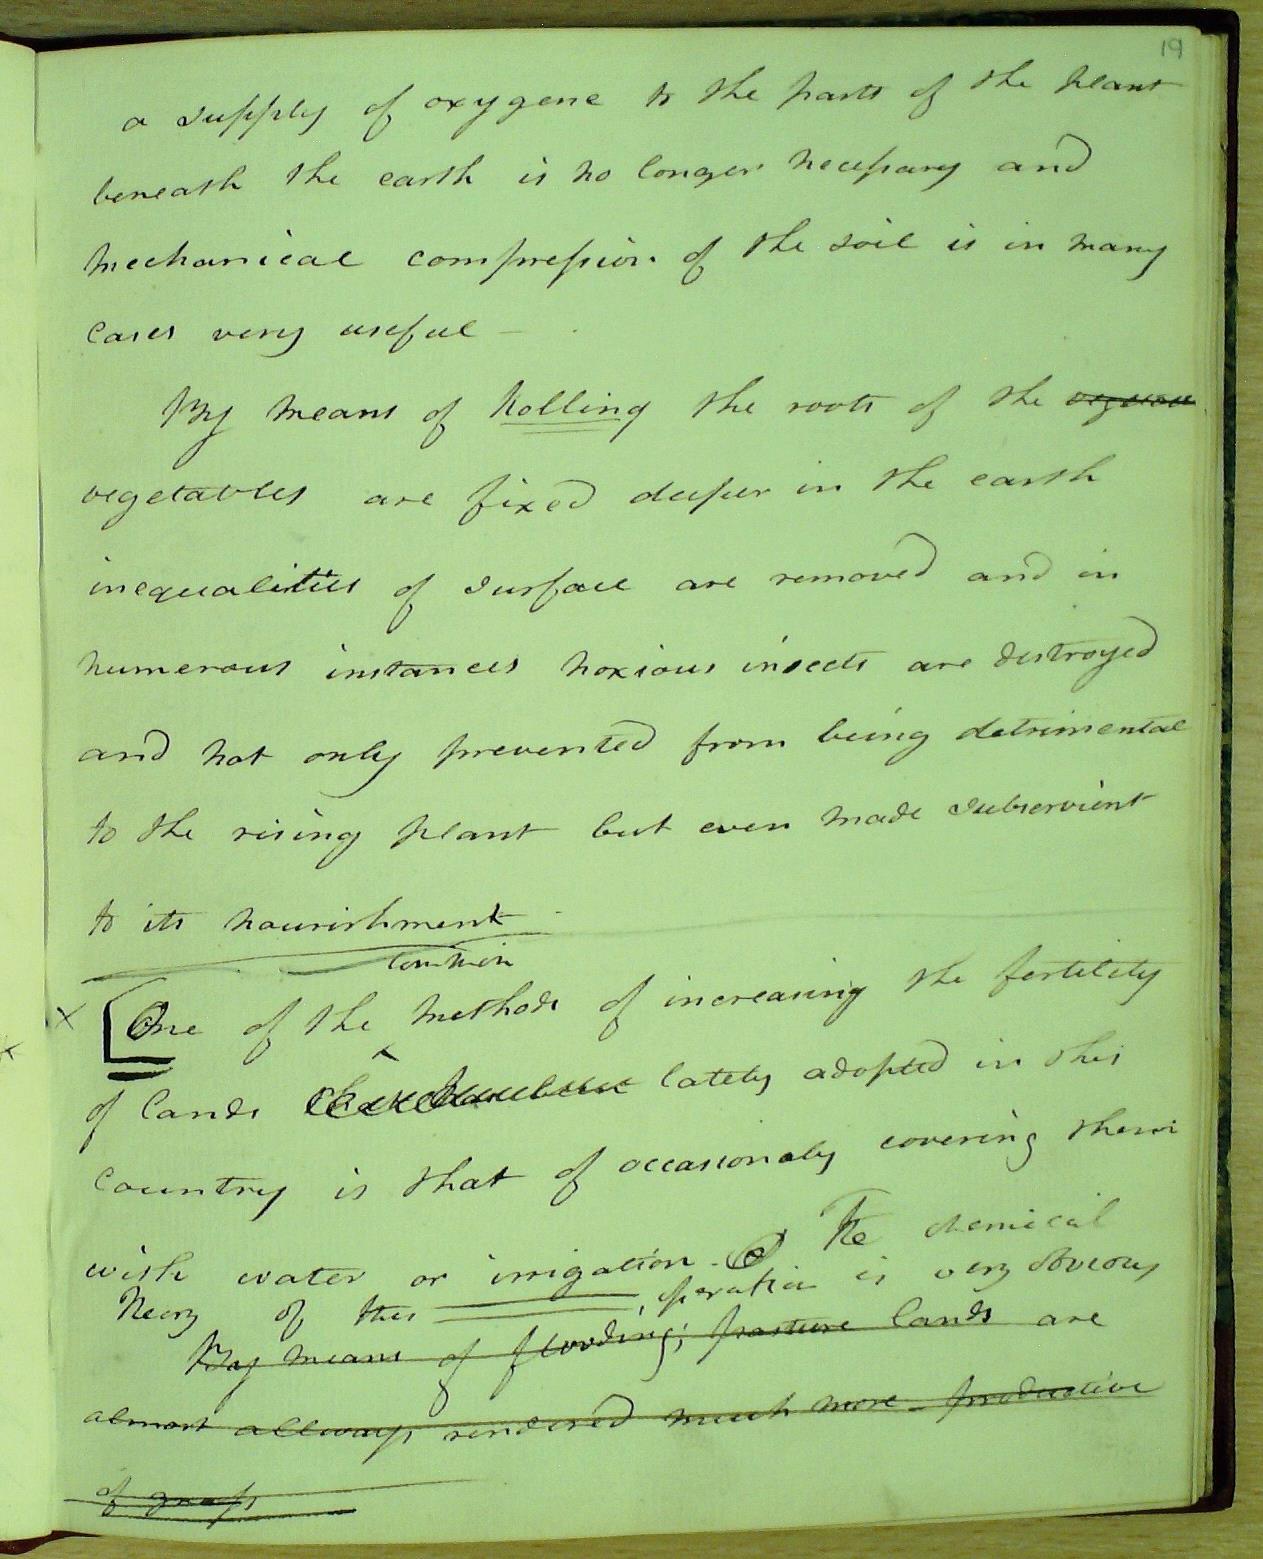 19
a supply of oxygene to the parts of the plant
beneath the earth is no longer necessary and
mechanical compression of the soil is in many
cases very useful –
By means of Rolling the roots of the
vegetables are fixed deeper in the earth
inequalities of surface are removed and in
numerous instances noxious insects are destroyed
and not only prevented from being detrimental
to the rising plant but even made subservient
to its nourishment
common
x [One of the ^ methods of increasing the fertility
of lands lately adopted in this
country is that of occasionaly covering them
with water or irrigation. The chemical
theory of this operation is very obvious
By means of flooding; pasture lands are
almost allways rendered much more productive
of grass